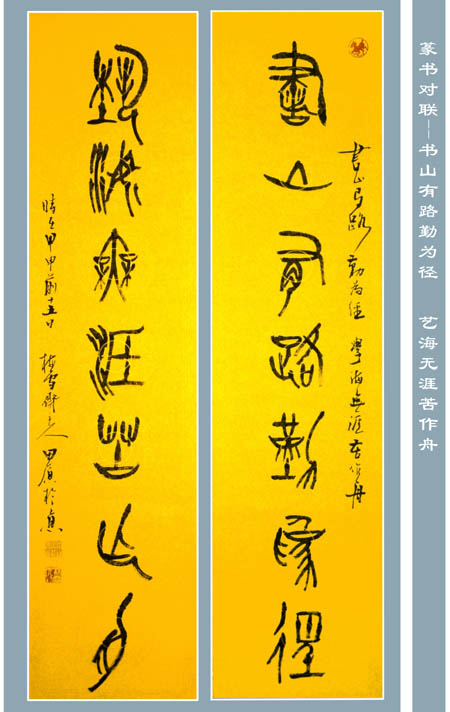 篆书对联--书山有路勤为径 艺海无涯苦作舟
書山有路勤為徑
書山有路勤为徑 學海無涯苦作舟
藝海無涯苦乍舟
時在甲申前十五日